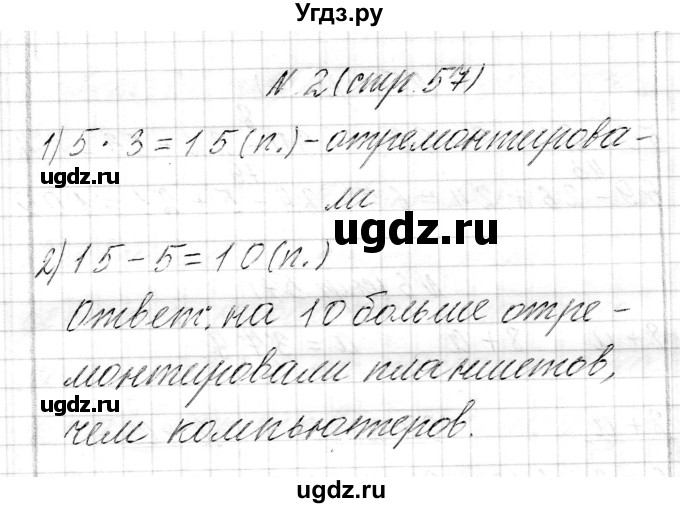 Угдз.ру
№ 2 (стр. 57)
1) 5 · 3 = 15 (п.) – отремонтирова-
ugdz.ru
ли
ugdz.ru
2) 15 – 5 = 10 (п.)
Ответ: на 10 больше отре-
монтировали планшетов,
ugdz.ru
чем компьютеров.
ugdz.ru